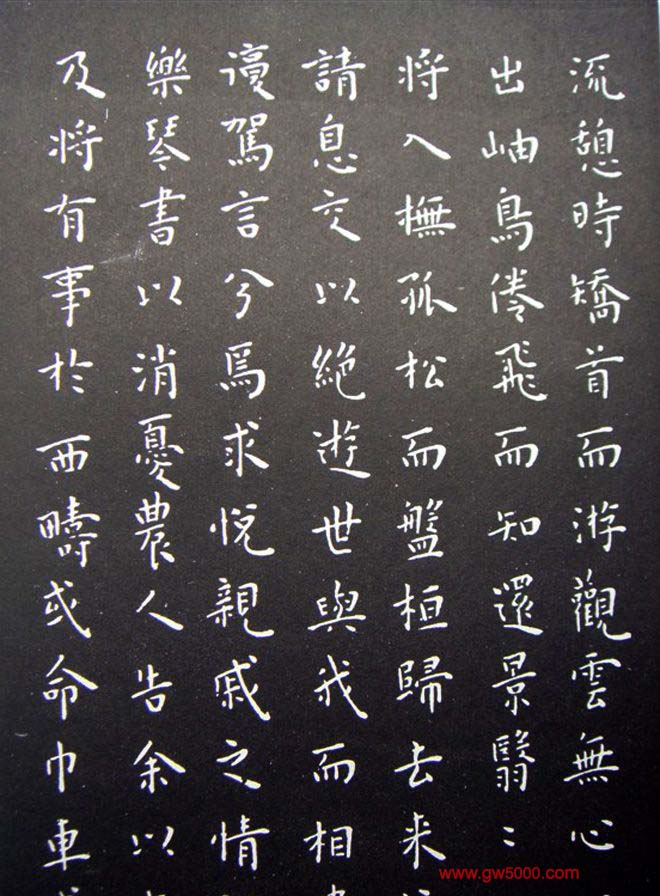 流憩時矯首而游觀雲無心
出岫鳥倦飛而知還景翳〻
将入撫孤松而盤桓歸去来
請息交以絶遊世與我而相
復駕言兮焉求悦親戚之情
樂琴書以消憂農人告余以
及将有事於西疇或命巾車
www.gw5000.com